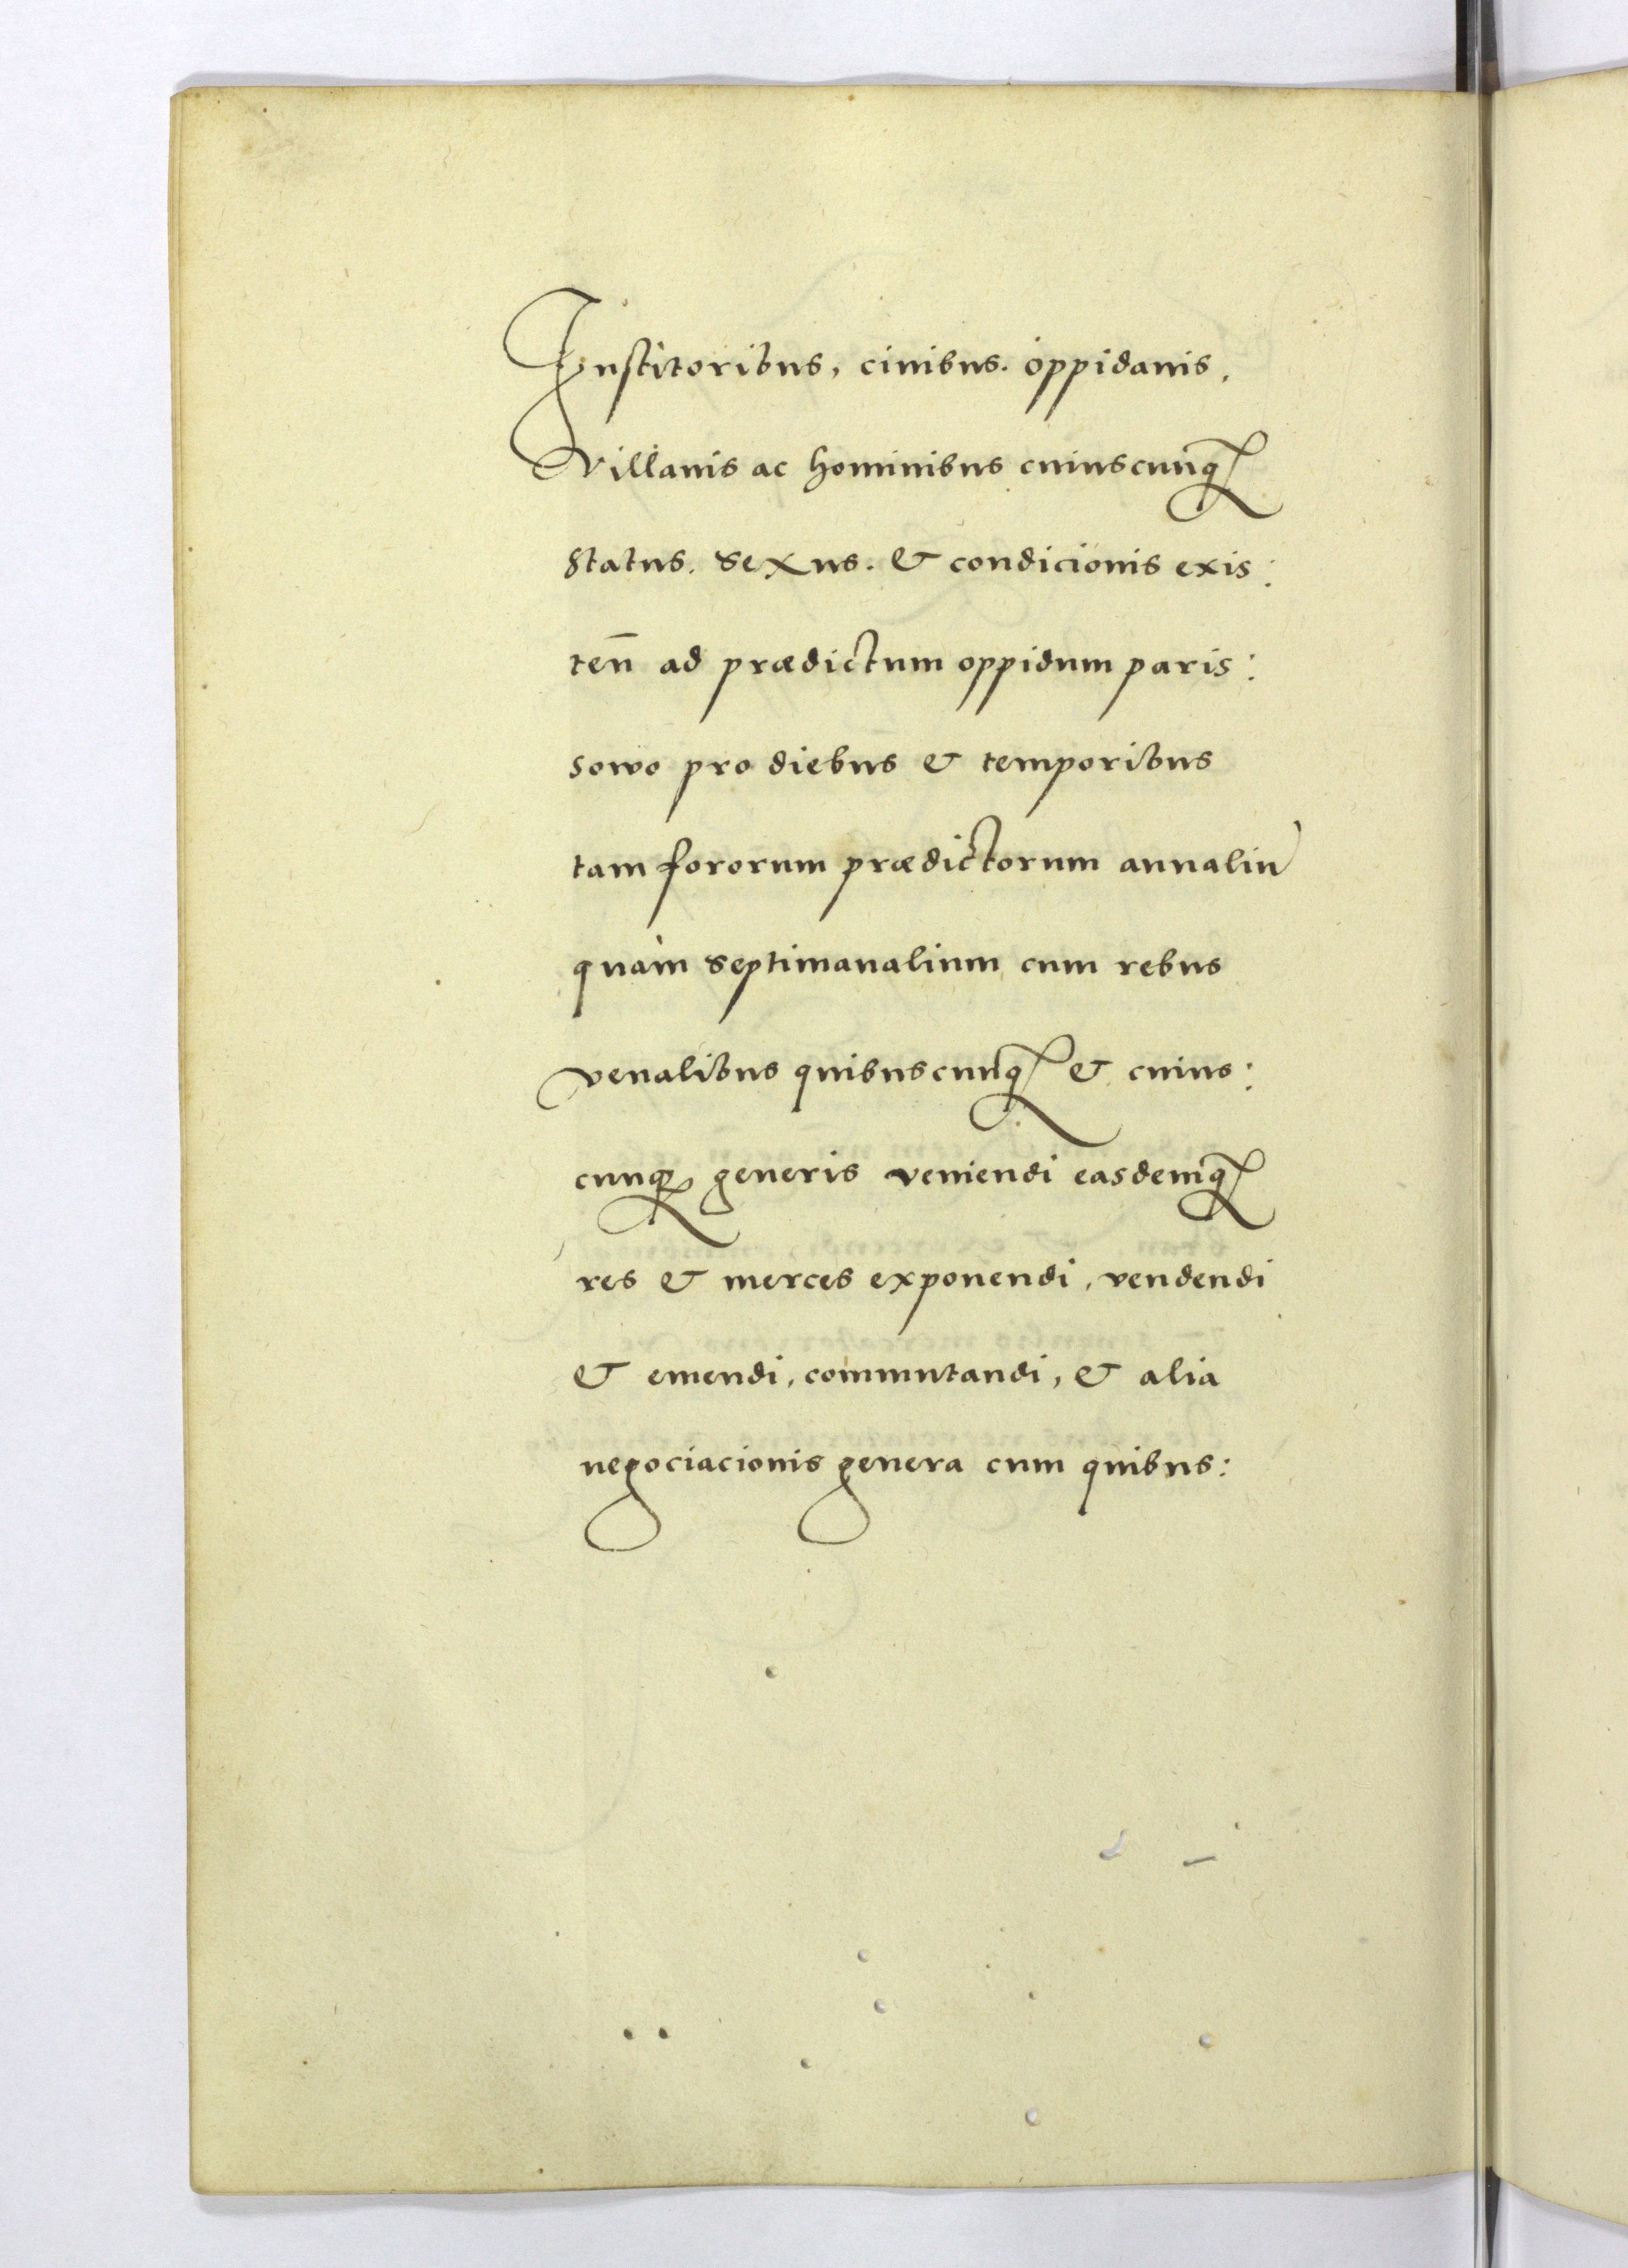 Institoribus, ciuibus. oppidanis,
Villanis ac hominibus cuiuscunq₃
status. sexus. & condicionis exis:
teñ ad prædictum oppidum paris:
sowo pro diebus & temporibus
tam fororum prædictorum annaliũ
quàm septimanalium cum rebus
venalibus quibuscunq₃ & cuius:
cunq₃ generis veniendi easdemq₃
res & merces exponendi, vendendi
& emendi, commutandi, & alia
negociacionis genera cum quibus: